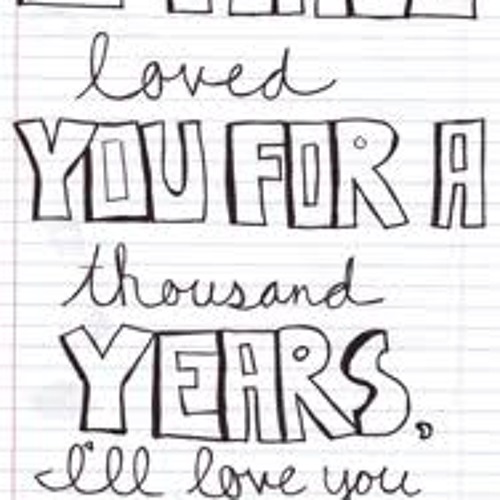 loved
YOU FOR A
thousand
YEARS.
I'll love you